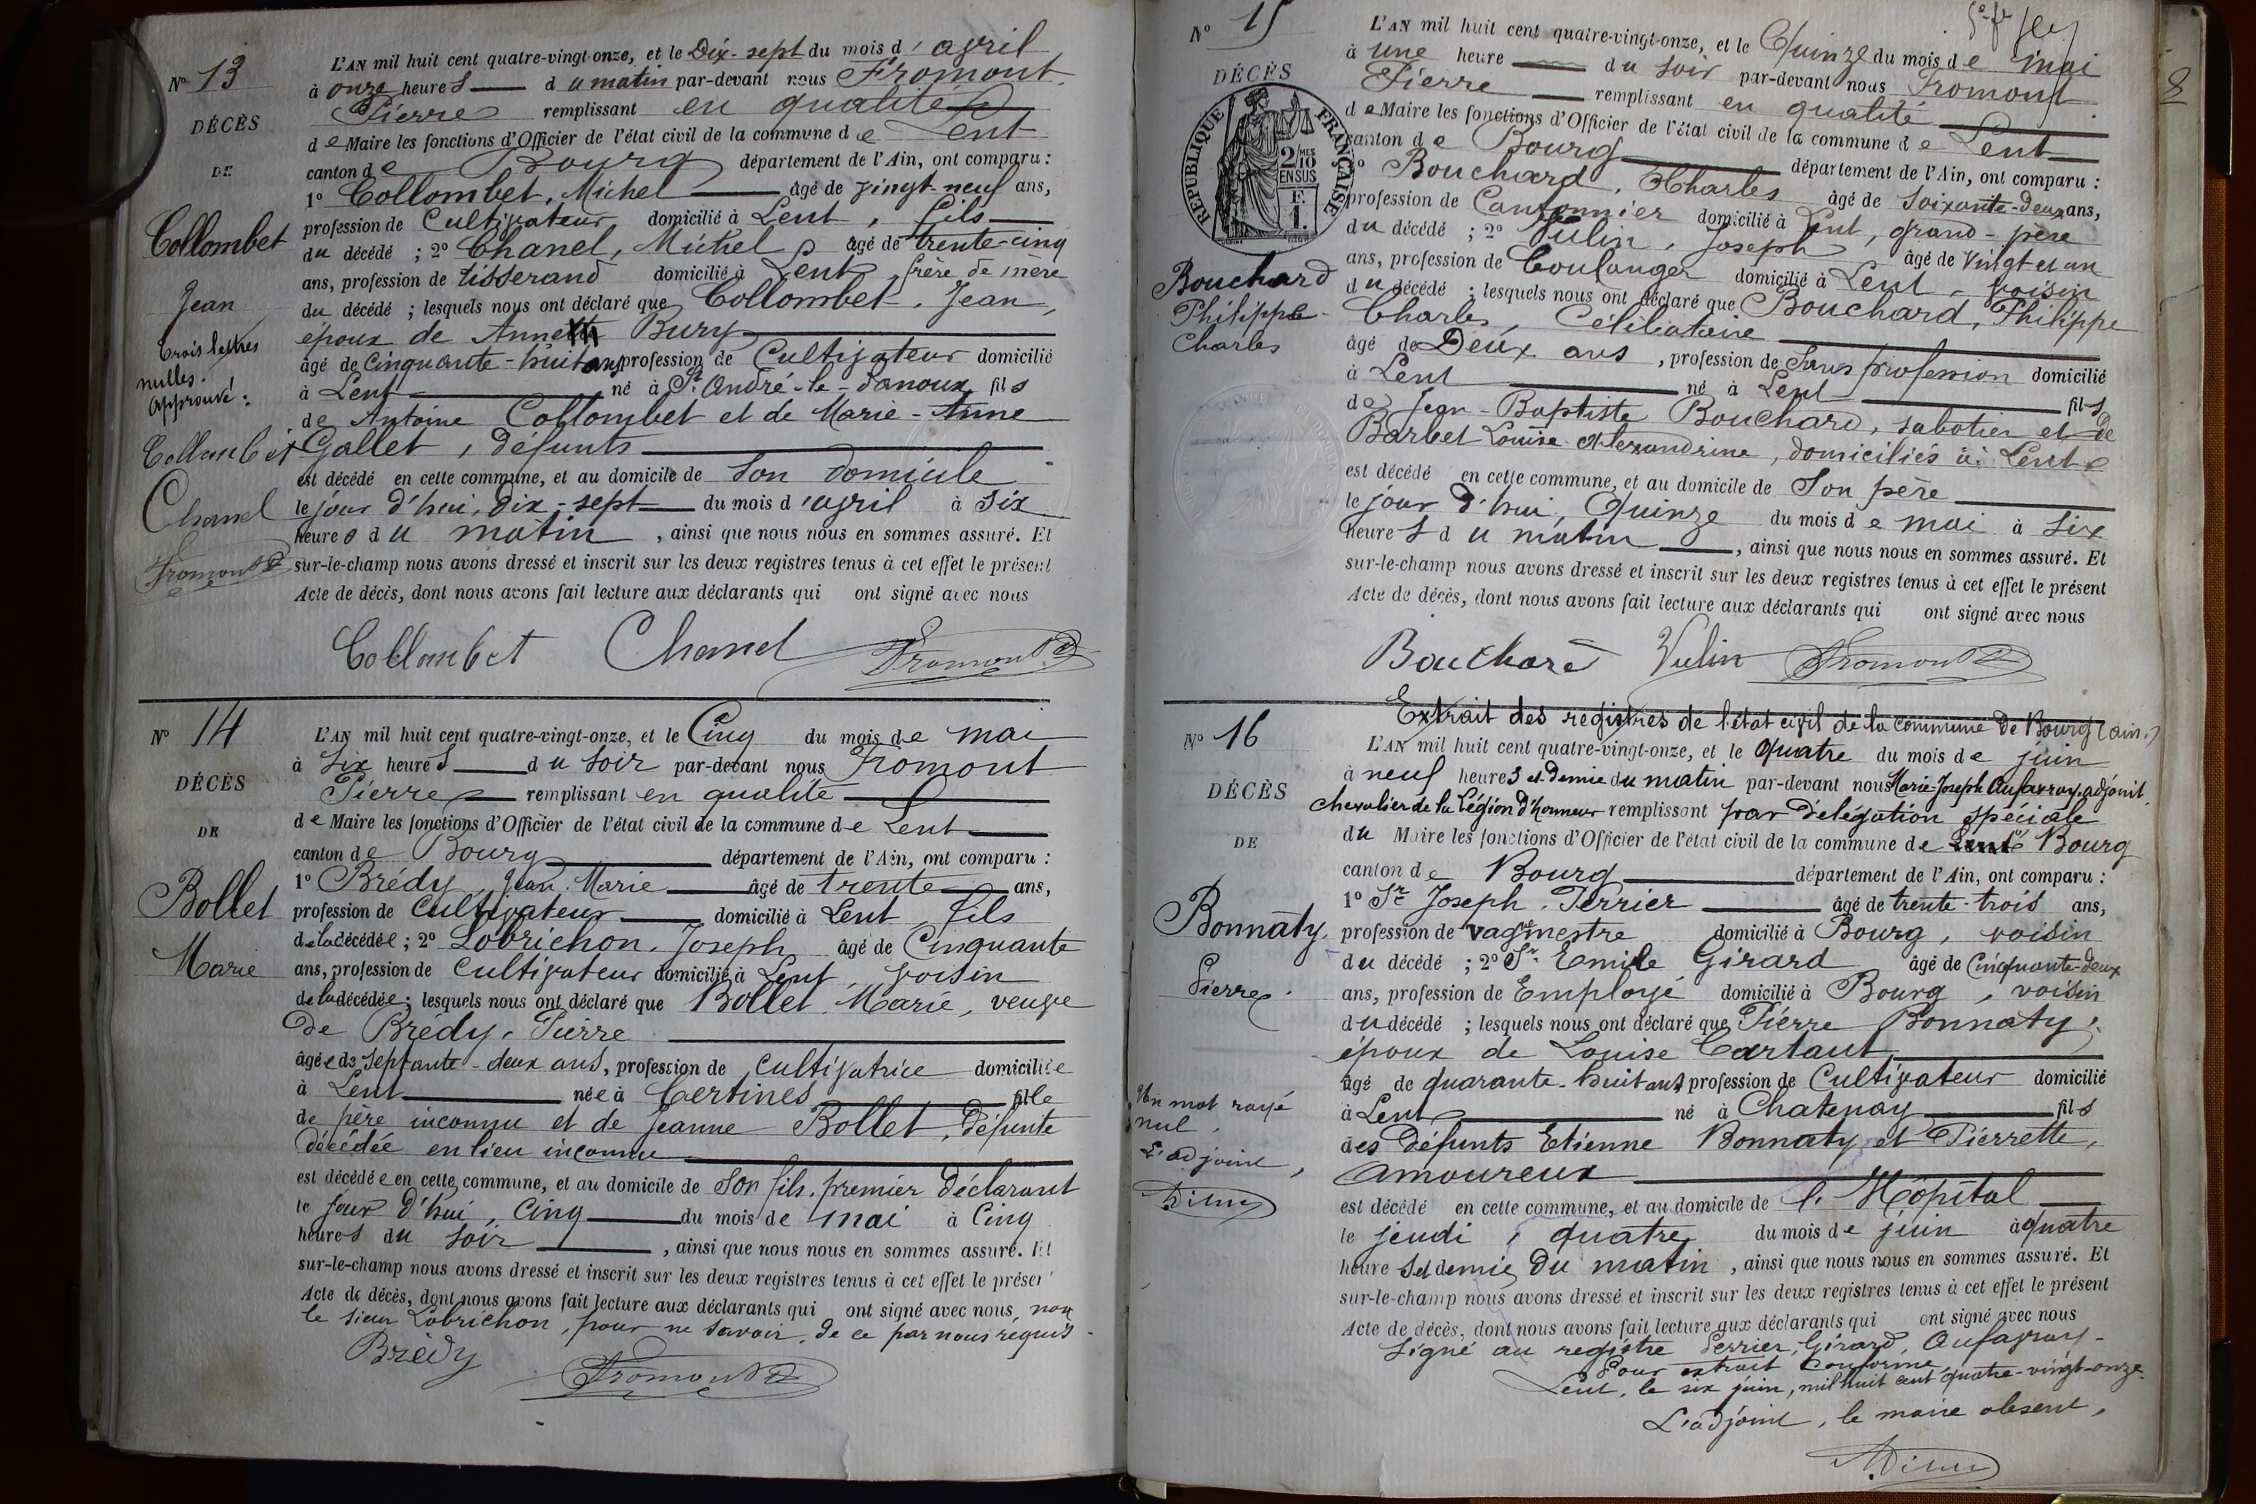 N° 13
DÉCÈS
DE
Collombet
Jean
trois lettres
nulles.
approuvé :
Collombet
Chanel
Fromont
L'AN mil huit cent quatre-vingt-onze, et le Dix-sept du mois d'avril
à onze heures du matin par-devant nous Fromont
Pierre remplissant en qualité
de Maire les fonctions d'Officier de l'état civil de la commune de Lent
canton de Bourg département de l'Ain, ont comparu :
1° Collombet, Michel âgé de vingt-neuf ans,
profession de Cultivateur domicilié à Lent, fils
du décédé ; 2° Chanel, Michel âgé de trente-cinq
ans, profession de tisserand domicilié à Lent, frère de mère
du décédé ; lesquels nous ont déclaré que Collombet, Jean,
époux de Anne Bury
âgé de Cinquante-huit ans, profession de Cultivateur domicilié
à Lent né à St André-le-Panoux fils
de Antoine Collombet et de Marie-Anne
Gallet, défunts
est décédé en cette commune, et au domicile de Son domicile
le jour d'hui, dix-sept du mois d'avril à Six
heures du matin, ainsi que nous nous en sommes assuré. Et
sur-le-champ nous avons dressé et inscrit sur les deux registres tenus à cet effet le présent
Acte de décès, dont nous avons fait lecture aux déclarants qui ont signé avec nous
Collombet Chanel Fromont
N° 14
DÉCÈS
DE
Bollet
Marie
L'AN mil huit cent quatre-vingt-onze, et le Cinq du mois de mai
à Six heures du soir par-devant nous Fromont
Pierre remplissant en qualité
de Maire les fonctions d'Officier de l'état civil de la commune de Lent
canton de Bourg département de l'Ain, ont comparu :
1° Brédy, Jean-Marie âgé de trente ans,
profession de Cultivateur domicilié à Lent, fils
de la décédée ; 2° Lobrichon, Joseph âgé de Cinquante
ans, profession de Cultivateur domicilié à Lent, voisin
de la décédée ; lesquels nous ont déclaré que Bollet, Marie, veuve
de Brédy, Pierre
âgée de Septante-deux ans, profession de Cultivatrice domiciliée
à Lent née à Certines fille
de père inconnu et de Jeanne Bollet, défunte
décédée en lieu inconnu
est décédée en cette commune, et au domicile de Son fils, premier déclarant
le jour d'hui, cinq du mois de mai à Cinq
heures du soir, ainsi que nous nous en sommes assuré. Et
sur-le-champ nous avons dressé et inscrit sur les deux registres tenus à cet effet le présen
Acte de décès, dont nous avons fait lecture aux déclarants qui ont signé avec nous, non
le sieur Lobrichon, pour ne savoir, de ce par nous requis
Brédy Fromont
N° 15
DÉCÈS
RÉPUBLIQUE FRANÇAISE
2/10 MES
EN SUS
F.
1.
Bouchard
Philippe-
Charles
8
L'AN mil huit cent quatre-vingt-onze, et le Quinze du mois de mai
à une heure du soir par-devant nous Fromont
Pierre remplissant en qualité
de Maire les fonctions d'Officier de l'état civil de la commune de Lent
canton de Bourg département de l'Ain, ont comparu :
1° Bouchard, Charles âgé de Soixante-deux ans,
profession de Cantonnier domicilié à Lent, grand-père
du décédé ; 2° Vulin, Joseph âgé de vingt et un
ans, profession de Boulanger domicilié à Lent, voisin
du décédé ; lesquels nous ont déclaré que Bouchard, Philippe
Charles, Célibataire
âgé de Deux ans, profession de Sans profession domicilié
à Lent né à Lent fils
de Jean-Baptiste Bouchard, sabotier et de
Barbet Louise Alexandrine, domiciliés à Lent
est décédé en cette commune, et au domicile de Son père
le jour d'hui, Quinze du mois de mai à Six
heures du matin, ainsi que nous nous en sommes assuré. Et
sur-le-champ nous avons dressé et inscrit sur les deux registres tenus à cet effet le présent
Acte de décès, dont nous avons fait lecture aux déclarants qui ont signé avec nous
Bouchard Vulin Fromont
N° 16
DÉCÈS
DE
Bonnaty,
Pierre.
Un mot rayé
nul.
L'adjoint,
Extrait des registres de l'état civil de la commune de Bourg (ain.)
L'AN mil huit cent quatre-vingt-onze, et le Quatre du mois de juin
à neuf heures et demie du matin par-devant nous Marie-Joseph Aufavray, adjoint,
chevalier de la Légion d'honneur remplissant par délégation spéciale
du Maire les fonctions d'Officier de l'état civil de la commune de Lent Bourg
canton de Bourg département de l'Ain, ont comparu :
1° Sr Joseph Perrier âgé de trente-trois ans,
profession de vaguemestre domicilié à Bourg, voisin
du décédé ; 2° Sr Emile Girard âgé de Cinquante-deux
ans, profession de Employé domicilié à Bourg, voisin
du décédé ; lesquels nous ont déclaré que Pierre Bonnaty,
époux de Louise Cartaut
âgé de quarante-huit ans, profession de Cultivateur domicilié
à Lent né à Chatenay fils
des défunts Etienne Bonnaty et Pierrette,
amoureux
est décédé en cette commune, et au domicile de l'Hôpital
le jeudi, quatre du mois de juin à quatre
heures et demie du matin, ainsi que nous nous en sommes assuré. Et
sur-le-champ nous avons dressé et inscrit sur les deux registres tenus à cet effet le présent
Acte de décès, dont nous avons fait lecture aux déclarants qui ont signé avec nous
Signé au registre Perrier, Girard, Aufavray-
Pour extrait conforme
Lent, le six juin, mil huit cent quatre-vingt-onze.
L'adjoint, le maire absent,